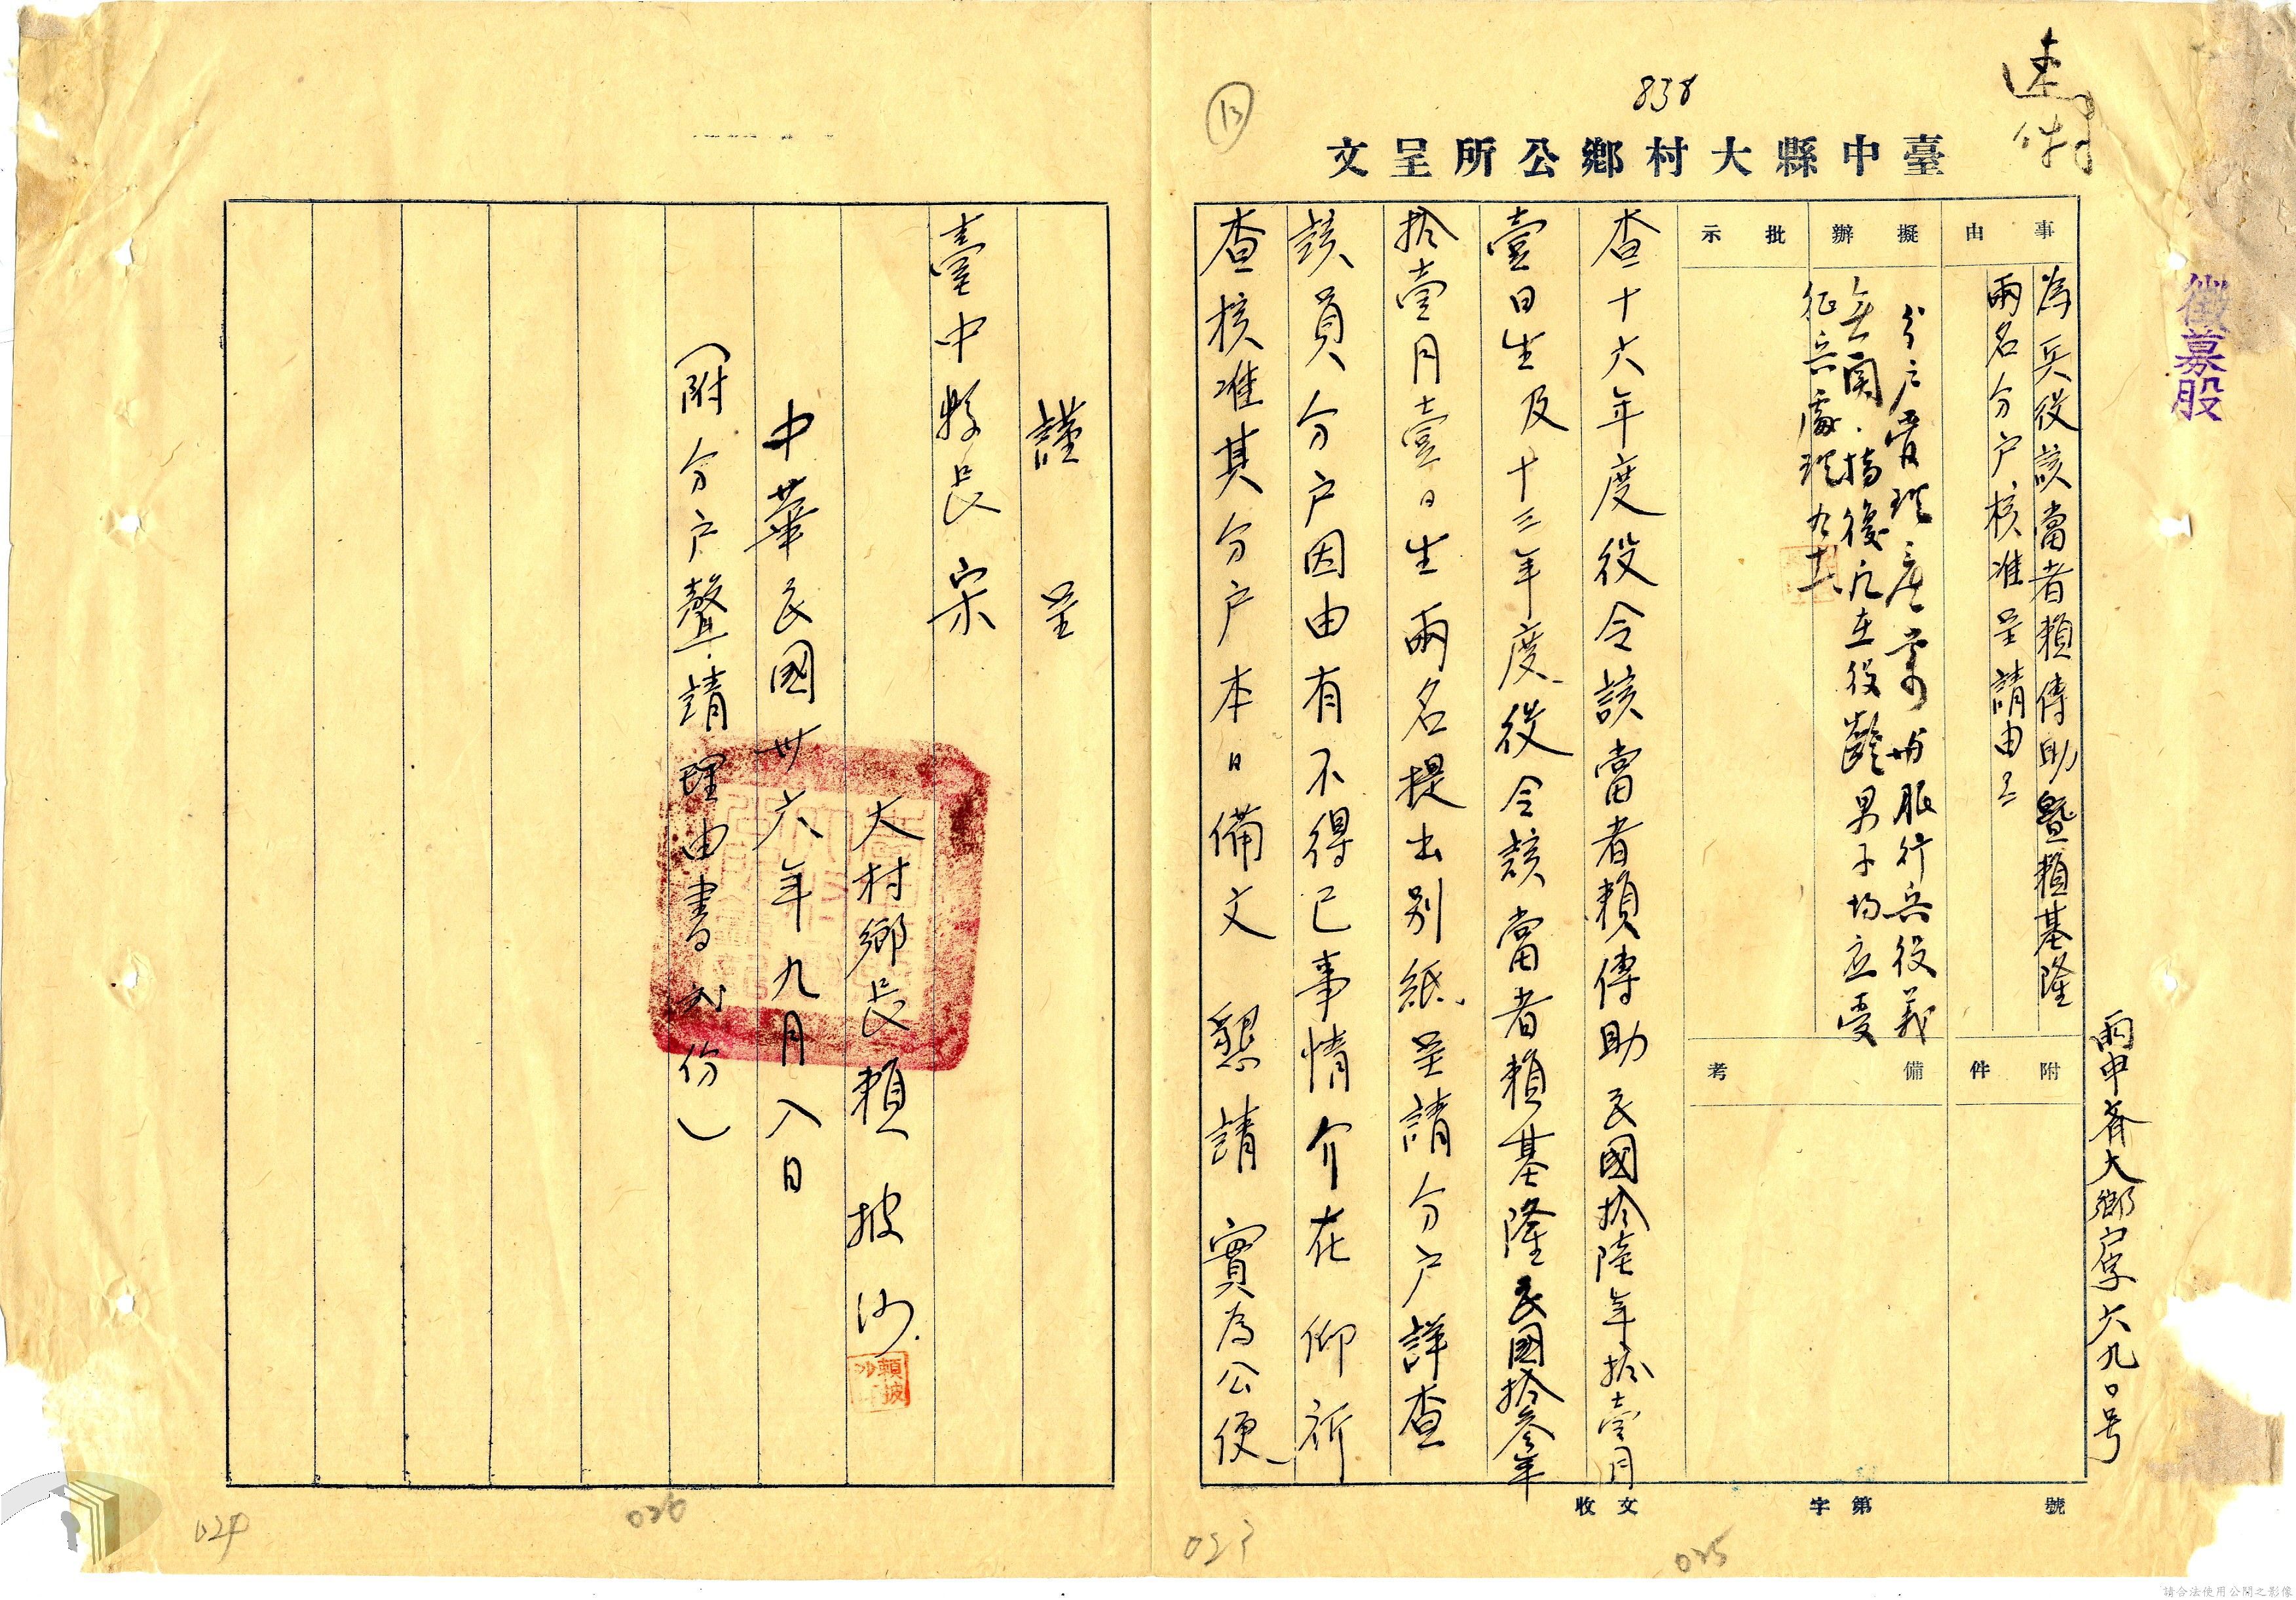 速件
838
13
臺中縣大村鄉公所呈文
徵募股
申齊大鄉字六九〇号
事由
為兵役該當者賴傳助暨賴基隆
兩名分户核准呈請由
附件
擬辦
分户管理應當男服行兵役義
無関.搞後凡在役齡男子均应受
征兵處理
批示
備考
查十六年度役令該當者賴傳助民國拾陸年拾壹月
壹日生及十三年度役令該當者賴基隆民國拾參年
拾壹月壹日生兩名提出別紙呈請分户詳查
該員分户因由有不得已事情介在 仰祈
查核准其分户本日備文 懇請 實為公便
收文
字第
號
謹呈
臺中縣長宋
大村鄉長賴披沙
賴披沙
中華民國卅六年九月八日
(附分户聲請理由書式份)
024
026
023
025
請合法使用公開之影像